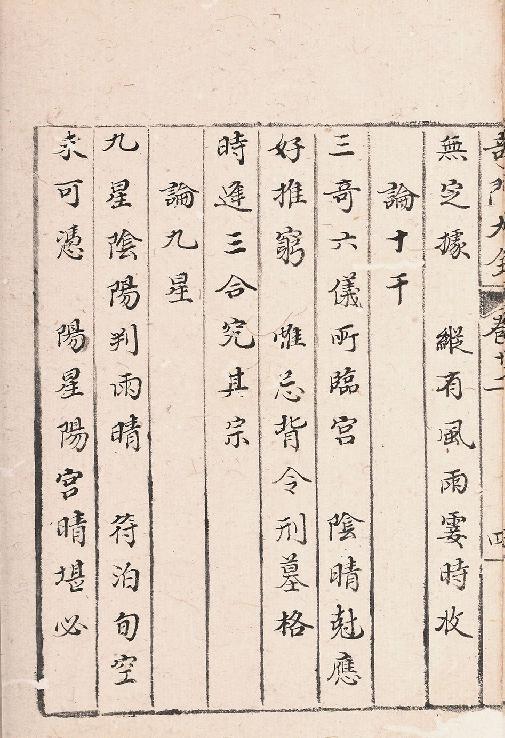 奇門大全 卷十二 四
無定據 縱有風雨霎時收
論十干
三奇六儀所臨宮 陰晴尅應
好推窮 惟忌背令刑墓格
時逢三合究其宗
論九星
九星陰陽判雨晴 符泊旬空
未可憑 陽星陽宮晴堪必